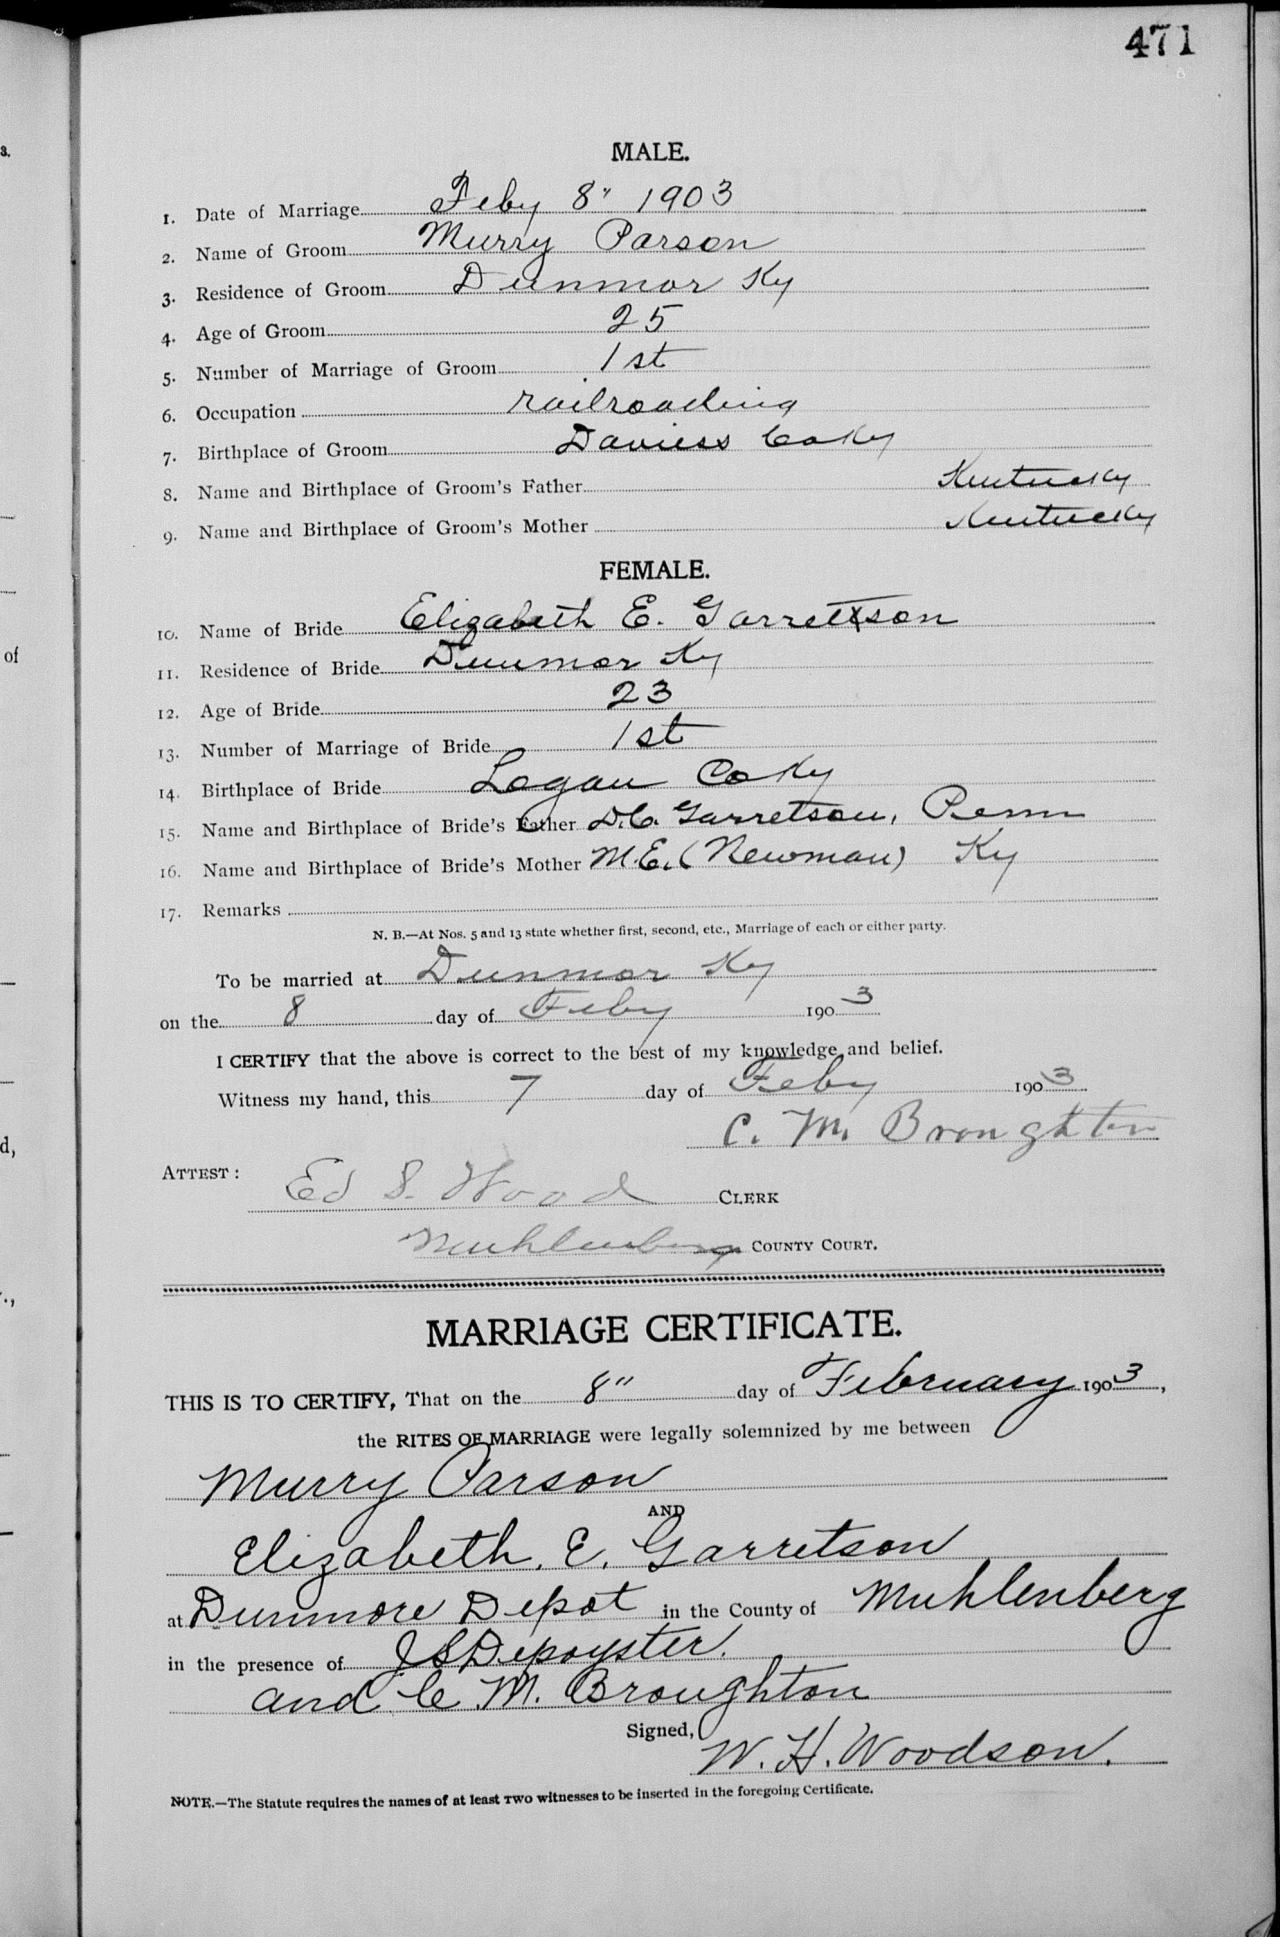 471
MALE.
1. Date of Marriage Feby 8" 1903
2. Name of Groom Murry Parson
3. Residence of Groom Dunmor Ky
4. Age of Groom 25
5. Number of Marriage of Groom 1st
6. Occupation railroading
7. Birthplace of Groom Daviess Co Ky
8. Name and Birthplace of Groom's Father Kentucky
9. Name and Birthplace of Groom's Mother Kentucky
FEMALE.
10. Name of Bride Elizabeth E. Garretson
11. Residence of Bride Dunmor Ky
12. Age of Bride 23
13. Number of Marriage of Bride 1st
14. Birthplace of Bride Logan Co Ky
15. Name and Birthplace of Bride's Father D.C. Garretson, Penn
16. Name and Birthplace of Bride's Mother M.E. (Newman) Ky
17. Remarks
N. B.—At Nos. 5 and 13 state whether first, second, etc., Marriage of each or either party.
To be married at Dunmor Ky
on the 8 day of Feby 1903
I CERTIFY that the above is correct to the best of my knowledge and belief.
Witness my hand, this 7 day of Feby 1903
C. M. Broughton
ATTEST: Ed S. Wood CLERK
Muhlenberg COUNTY COURT.
MARRIAGE CERTIFICATE.
THIS IS TO CERTIFY, That on the 8" day of February 1903,
the RITES OF MARRIAGE were legally solemnized by me between
Murry Parson
AND
Elizabeth. E. Garretson
at Dunmore Depot in the County of Muhlenberg
in the presence of J S Depoyster.
and C. M. Broughton
Signed, W. H. Woodson.
NOTE.—The Statute requires the names of at least TWO witnesses to be inserted in the foregoing Certificate.